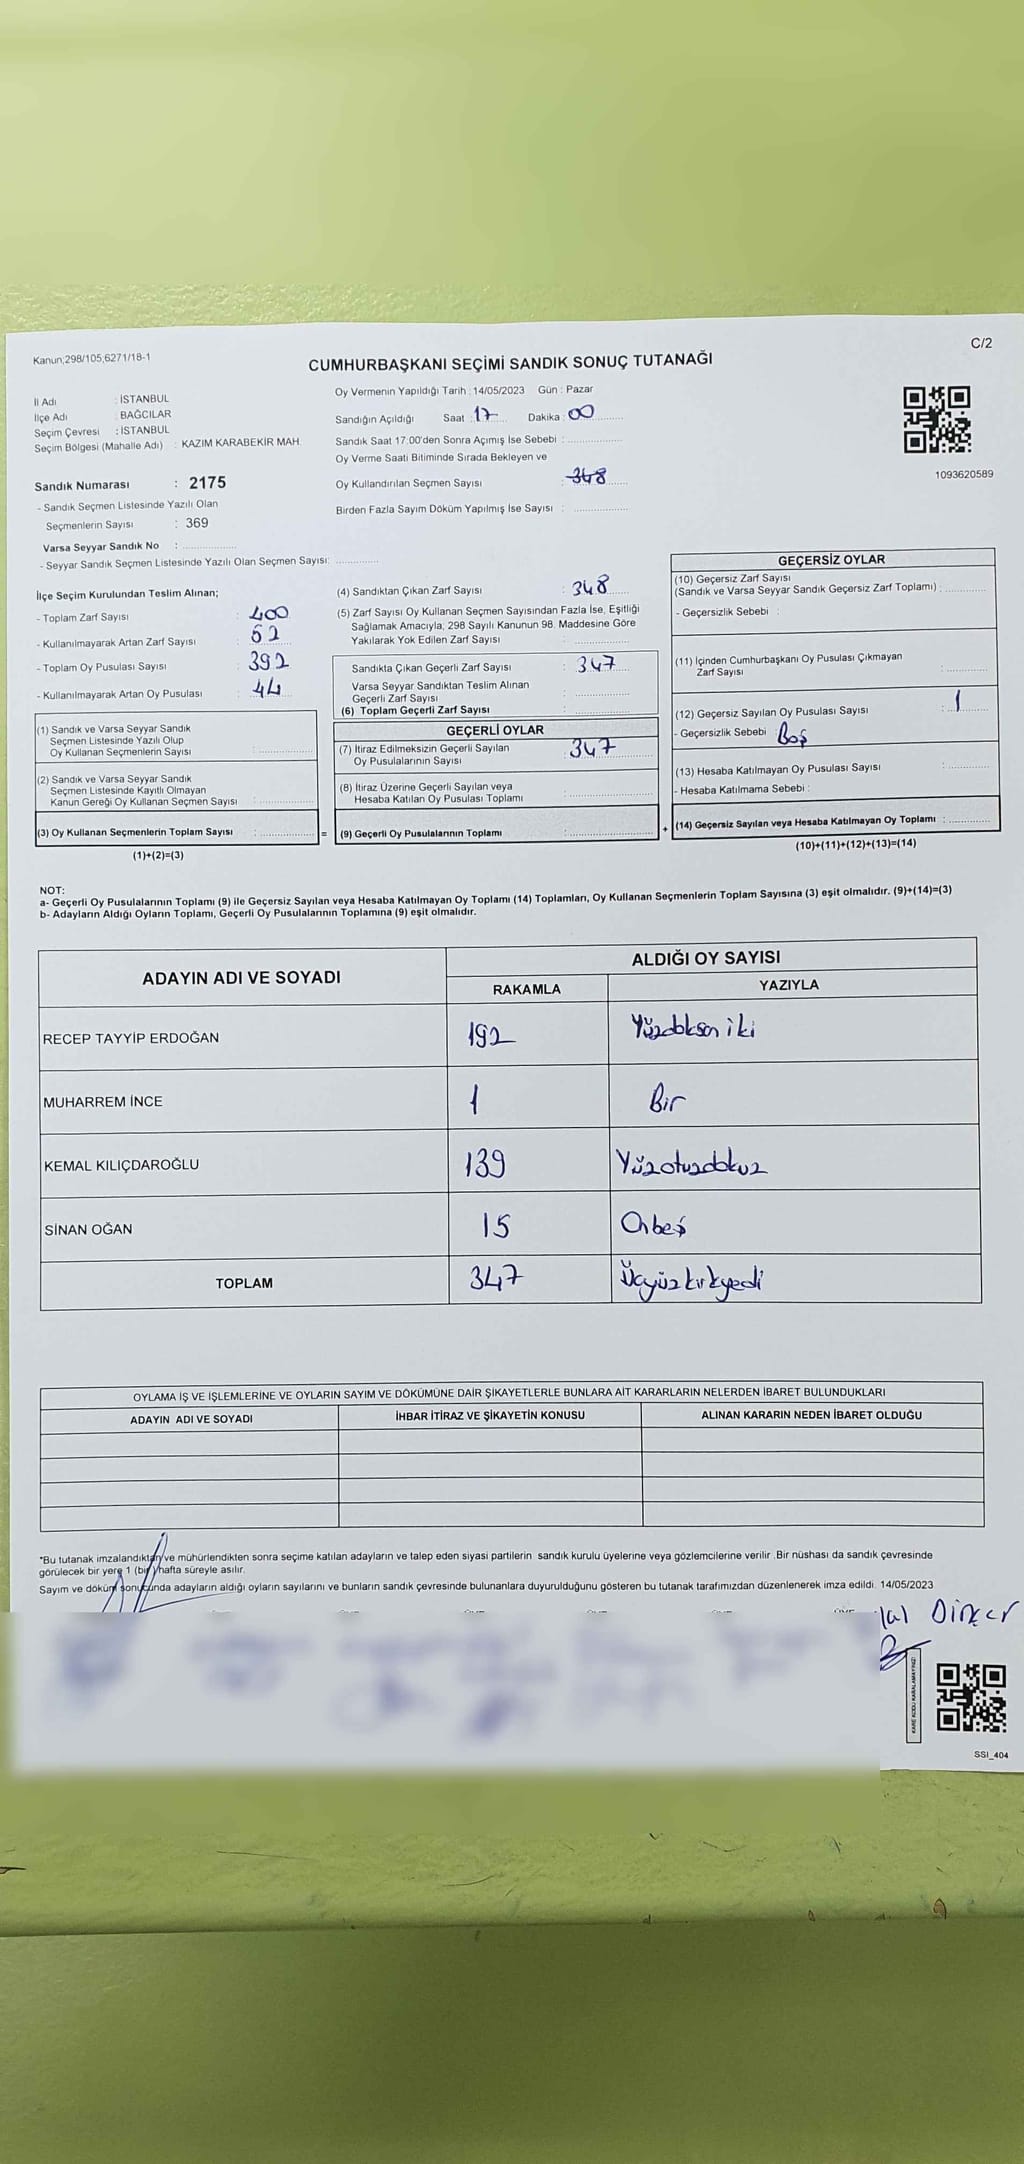 Kanun;298/105,6271/18-1
C/2
CUMHURBAŞKANI SEÇİMİ SANDIK SONUÇ TUTANAĞI
İl Adı : İSTANBUL
İlçe Adı : BAĞCILAR
Seçim Çevresi : İSTANBUL
Seçim Bölgesi (Mahalle Adı) : KAZIM KARABEKİR MAH.
Sandık Numarası : 2175
- Sandık Seçmen Listesinde Yazılı Olan
Seçmenlerin Sayısı : 369
Varsa Seyyar Sandık No :
- Seyyar Sandık Seçmen Listesinde Yazılı Olan Seçmen Sayısı:
Oy Vermenin Yapıldığı Tarih : 14/05/2023 Gün : Pazar
Sandığın Açıldığı Saat : 17 Dakika : 00
Sandık Saat 17:00'den Sonra Açımış İse Sebebi :
Oy Verme Saati Bitiminde Sırada Bekleyen ve
Oy Kullandırılan Seçmen Sayısı : 348
Birden Fazla Sayım Döküm Yapılmış İse Sayısı :
1093620589
İlçe Seçim Kurulundan Teslim Alınan;
- Toplam Zarf Sayısı : 400
- Kullanılmayarak Artan Zarf Sayısı : 52
- Toplam Oy Pusulası Sayısı : 392
- Kullanılmayarak Artan Oy Pusulası : 44
(1) Sandık ve Varsa Seyyar Sandık
Seçmen Listesinde Yazılı Olup
Oy Kullanan Seçmenlerin Sayısı :
(2) Sandık ve Varsa Seyyar Sandık
Seçmen Listesinde Kayıtlı Olmayan
Kanun Gereği Oy Kullanan Seçmen Sayısı :
(3) Oy Kullanan Seçmenlerin Toplam Sayısı :
(1)+(2)=(3)
=
(4) Sandıktan Çıkan Zarf Sayısı : 348
(5) Zarf Sayısı Oy Kullanan Seçmen Sayısından Fazla İse, Eşitliği
Sağlamak Amacıyla, 298 Sayılı Kanunun 98. Maddesine Göre
Yakılarak Yok Edilen Zarf Sayısı :
Sandıkta Çıkan Geçerli Zarf Sayısı : 347
Varsa Seyyar Sandıktan Teslim Alınan
Geçerli Zarf Sayısı :
(6) Toplam Geçerli Zarf Sayısı :
GEÇERLİ OYLAR
(7) İtiraz Edilmeksizin Geçerli Sayılan
Oy Pusulalarının Sayısı : 347
(8) İtiraz Üzerine Geçerli Sayılan veya
Hesaba Katılan Oy Pusulası Toplamı :
(9) Geçerli Oy Pusulalarının Toplamı :
+
GEÇERSİZ OYLAR
(10) Geçersiz Zarf Sayısı
(Sandık ve Varsa Seyyar Sandık Geçersiz Zarf Toplamı) :
- Geçersizlik Sebebi :
(11) İçinden Cumhurbaşkanı Oy Pusulası Çıkmayan
Zarf Sayısı :
(12) Geçersiz Sayılan Oy Pusulası Sayısı : 1
- Geçersizlik Sebebi : Boş
(13) Hesaba Katılmayan Oy Pusulası Sayısı :
- Hesaba Katılmama Sebebi :
(14) Geçersiz Sayılan veya Hesaba Katılmayan Oy Toplamı :
(10)+(11)+(12)+(13)=(14)
NOT:
a- Geçerli Oy Pusulalarının Toplamı (9) ile Geçersiz Sayılan veya Hesaba Katılmayan Oy Toplamı (14) Toplamları, Oy Kullanan Seçmenlerin Toplam Sayısına (3) eşit olmalıdır. (9)+(14)=(3)
b- Adayların Aldığı Oyların Toplamı, Geçerli Oy Pusulalarının Toplamına (9) eşit olmalıdır.
ADAYIN ADI VE SOYADI
ALDIĞI OY SAYISI
RAKAMLA YAZIYLA
RECEP TAYYİP ERDOĞAN 192 Yüzdoksan iki
MUHARREM İNCE 1 Bir
KEMAL KILIÇDAROĞLU 139 Yüzotuzdokuz
SİNAN OĞAN 15 Onbeş
TOPLAM 347 Üçyüzkırkyedi
OYLAMA İŞ VE İŞLEMLERİNE VE OYLARIN SAYIM VE DÖKÜMÜNE DAİR ŞİKAYETLERLE BUNLARA AİT KARARLARIN NELERDEN İBARET BULUNDUKLARI
ADAYIN ADI VE SOYADI İHBAR İTİRAZ VE ŞİKAYETİN KONUSU ALINAN KARARIN NEDEN İBARET OLDUĞU
*Bu tutanak imzalandıktan ve mühürlendikten sonra seçime katılan adayların ve talep eden siyasi partilerin sandık kurulu üyelerine veya gözlemcilerine verilir .Bir nüshası da sandık çevresinde
görülecek bir yere 1 (bir) hafta süreyle asılır.
Sayım ve döküm sonucunda adayların aldığı oyların sayılarını ve bunların sandık çevresinde bulunanlara duyurulduğunu gösteren bu tutanak tarafımızdan düzenlenerek imza edildi. 14/05/2023
lal Dinçer
KARE KODU KARALAMAYINIZ!
SSI_404